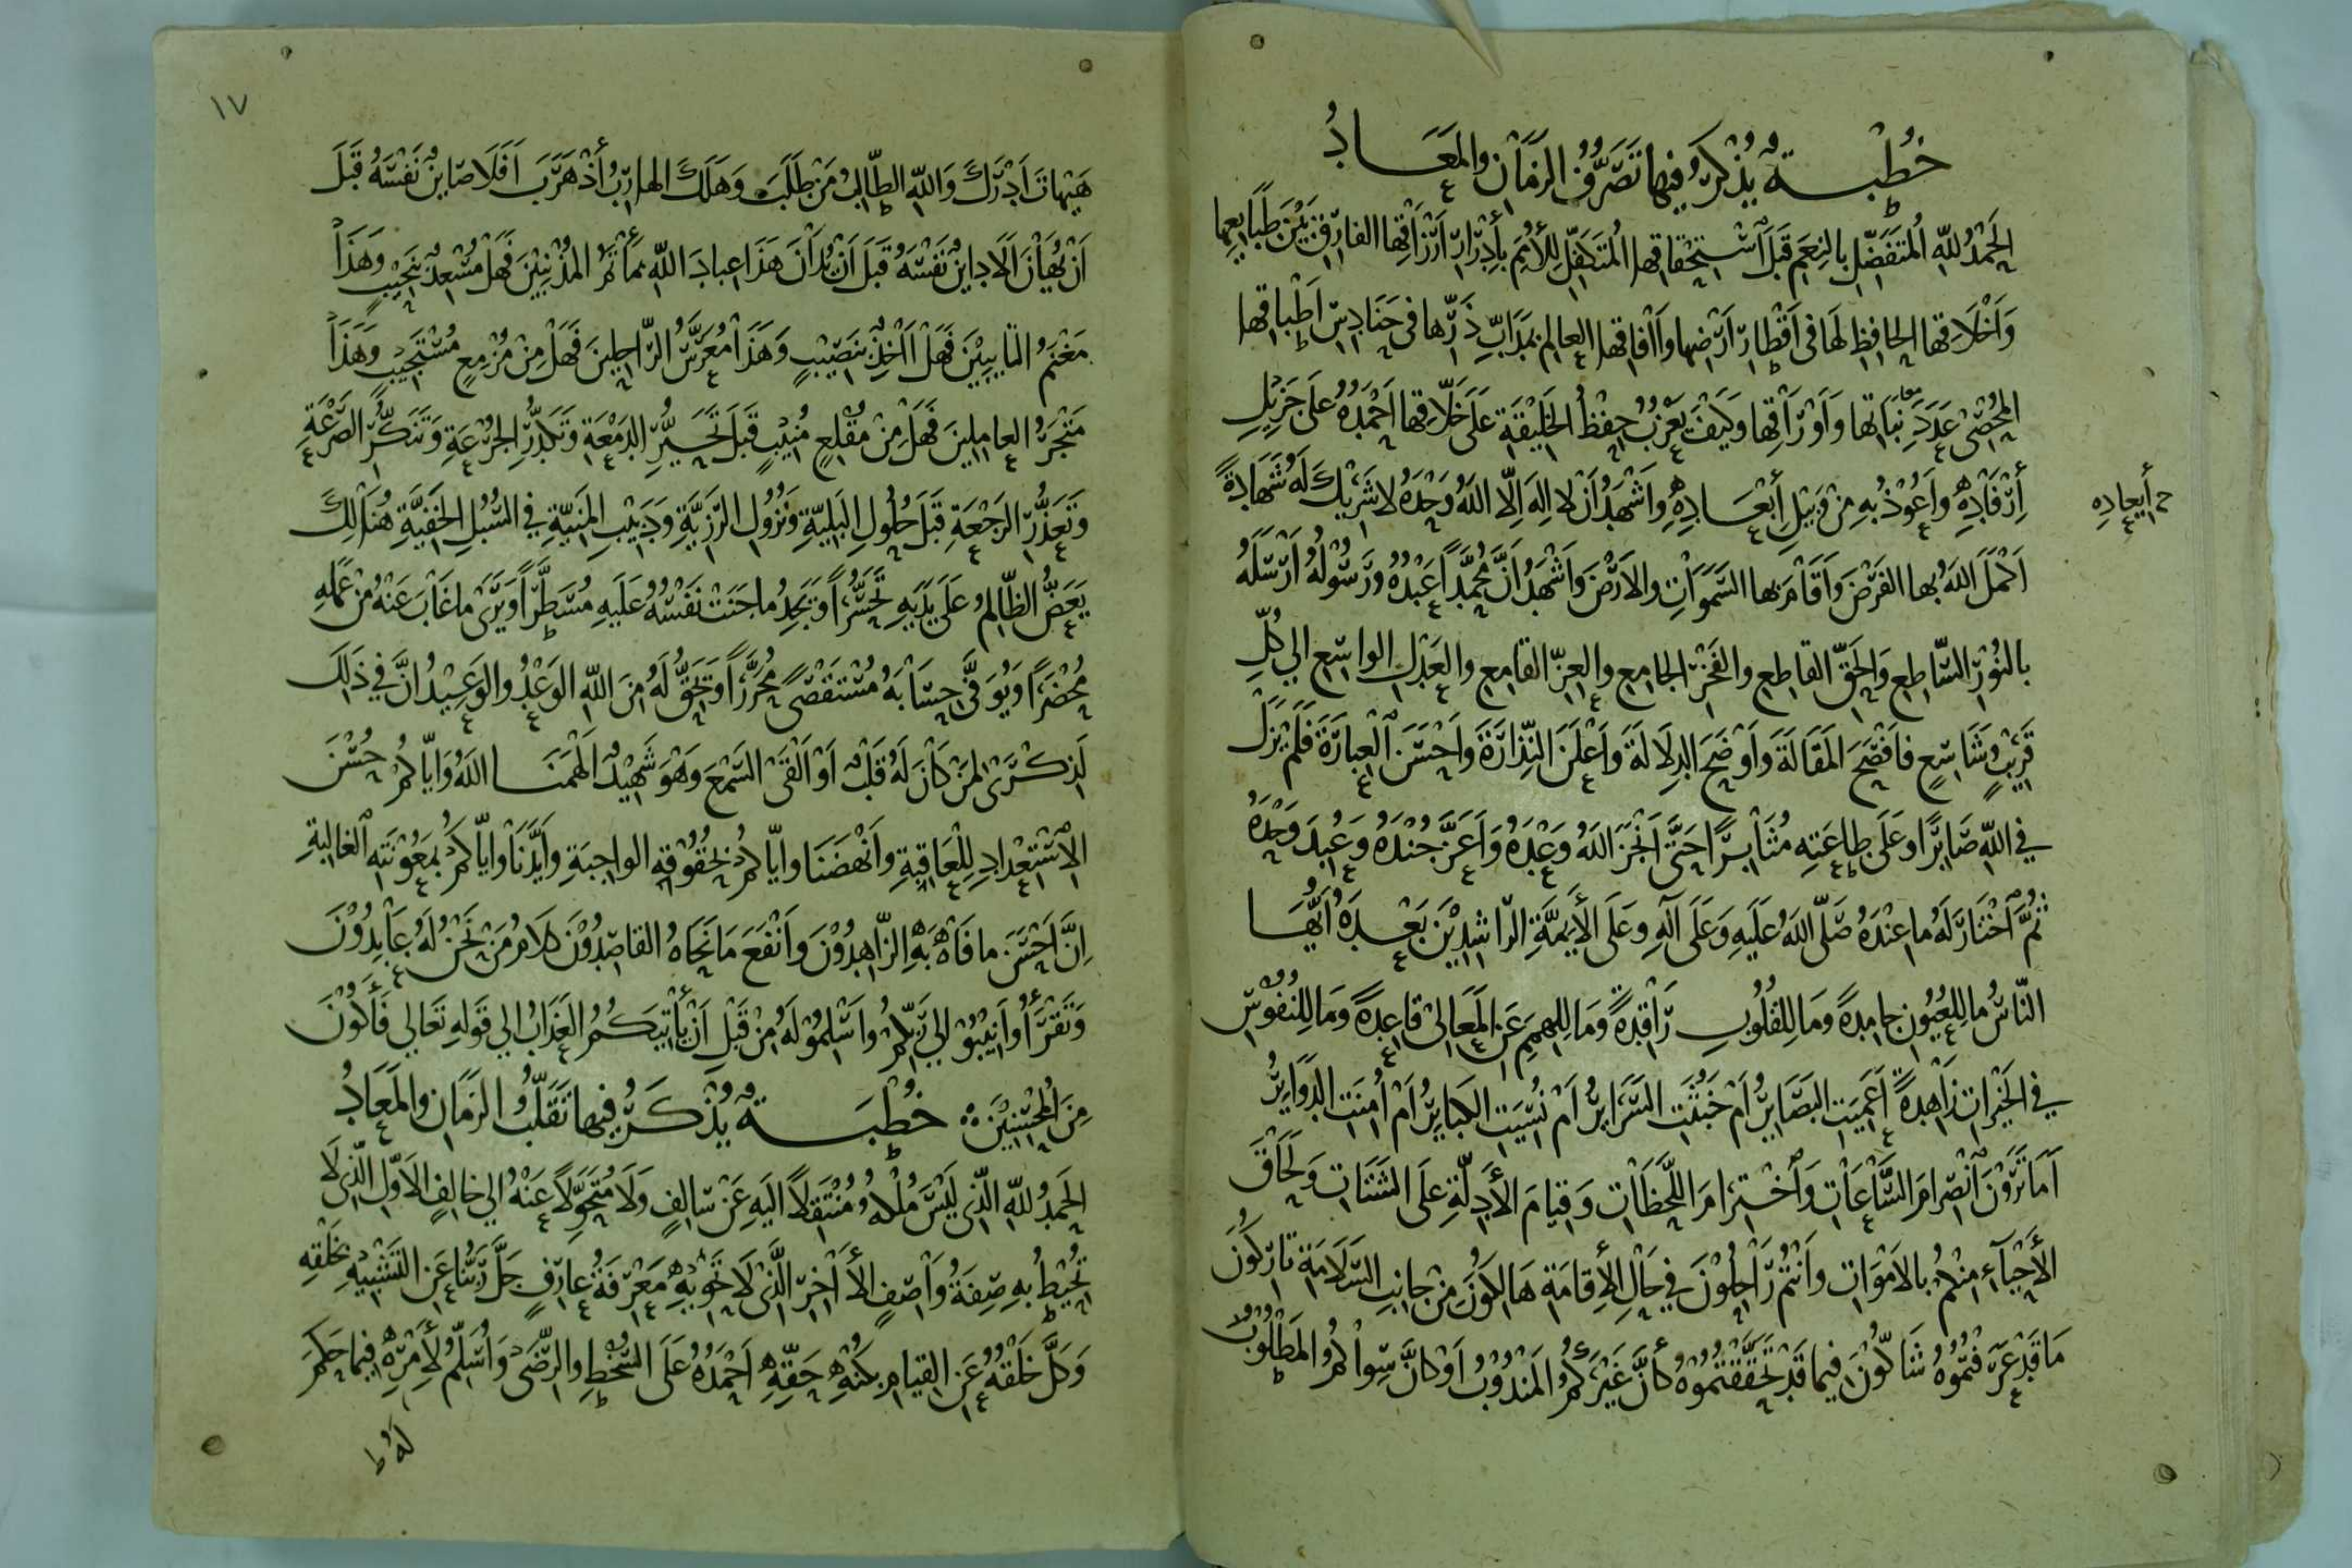 خُطْبَةٌ يُذْكَرُ فِيهَا تَصَرُّفُ الزَمَانِ وَالمَعَادُ
الحَمْدُ لِلّهِ المُتَفَضِّلِ بِالنِعَمِ قَبْلَ اسْتِحْقَاقِهَا المُتَكَفِّلِ لِلأُمَمِ بِإِدْرَارِ أَرْزَاقِهَا الفَارِقِ بَيْنَ طَبَايِعِهَا
وَأَخْلَاقِهَا الحَافِظِ لَهَا فِي أَقْطَارِ أَرْضِهَا وَآفَاقِهَا العَالِمِ بِمَدَابِّ ذَرِّهَا فِي حَنَادِسِ أَطْبَاقِهَا
المُحْصِي عَدَدَ نَبَاتِهَا وَأَوْرَاقِهَا وَكَيْفَ يَعْزُبُ حِفْظُ الخَلِيْقَةِ عَلَى خَلَّاقِهَا أَحْمَدُهُ عَلَى جَزِيْلِ
إِرْفَادِهِ وَأَعُوْذُ بِهِ مِنْ وَبِيْلِ إِبْعَادِهِ وَأَشْهَدُ أَنْ لَا إِلهَ إِلَّا اللهُ وَحْدَهُ لَا شَرِيْكَ لَهُ شَهَادَةً
إِيعَادِهِ
أَكْمَلَ اللهُ بِهَا الفَرْضَ وَأَقَامَ بِهَا السَّمَوَاتِ وَالأَرْضَ وَأَشْهَدُ أَنَّ مُحَمَّدًا عَبْدُهُ وَرَسُوْلُهُ أَرْسَلَهُ
بِالنُوْرِ السَّاطِعِ وَالحَقِّ القَاطِعِ وَالفَخْرِ الجَامِعِ وَالعِزِّ القَامِعِ وَالعَدْلِ الوَاسِعِ إِلَى كُلِّ
قَرِيْبٍ وَشَاسِعٍ فَأَفْصَحَ المَقَالَةَ وَأَوْضَحَ الدِلَالَةَ وَأَعْلَنَ النِّذَارَةَ وَأَحْسَنَ العِبَارَةَ فَلَمْ يَزَلْ
فِي اللهِ صَابِرًا وَعَلَى طَاعَتِهِ مُثَابِرًا حَتَّى أَنْجَزَ اللهُ وَعْدَهُ وَأَعَزَّ جُنْدَهُ وَعُبِدَ وَحْدَهُ
ثُمَّ اخْتَارَ لَهُ مَا عِنْدَهُ صَلَّى اللهُ عَلَيْهِ وَعَلَى آلِهِ وَعَلَى الأَيِمَّةِ الرَّاشِدِيْنَ بَعْدَهُ أَيُّهَا
النَّاسُ مَا لِلْعُيُونِ جَامِدَةً وَمَا لِلقُلُوبِ رَاقِدَةً وَمَا لِلهِمَمِ عَنِ المَعَالِي قَاعِدَةً وَمَا لِلنُفُوْسِ
فِي الخَيْرَاتِ زَاهِدَةً أَعَمِيَتِ البَصَايِرُ أَمْ خَبُثَتِ السَّرَايِرُ أَمْ نُسِيَتِ الكَبَايِرُ أَمْ أُمِنَتِ الدَّوَايِرُ
أَمَا تَرَوْنَ انْصِرَامَ السَّاعَاتِ وَاخْتِرَامَ اللَّحَظَاتِ وَقِيَامَ الأَدِلَّةِ عَلَى الشَتَاتِ وَلَحَاقَ
الأَحْيَآءِ مِنْكُمْ بِالأَمْوَاتِ وَأَنْتُمْ رَاحِلُوْنَ فِي حَالِ الإِقَامَةِ هَالِكُوْنَ مِنْ جَانِبِ السَّلَامَةِ تَارِكُوْنَ
مَا قَدْ عَرَفْتُمُوْهُ شَاكُّوْنَ فِيمَا قَدْ تَحَقَّقْتُمُوْهُ كَأَنَّ غَيْرَكُمُ المَنْدُوْبُ أَوْ كَأَنَّ سِوَاكُمُ المَطْلُوْبُ
١٧
هَيْهَاتَ أَدْرَكَ وَاللهِ الطَّالِبُ مَنْ طَلَبَ وَهَلَكَ الهَارِبُ أَوْ هَرَبَ أَفَلَا صَايِنٌ نَفْسَهُ قَبْلَ
أَنْ يُهَانَ أَلَا دَايِنٌ نَفْسَهُ قَبْلَ أَنْ يُدَانَ هَذَا عِبَادَ اللهِ مَأْتَمُ المُذْنِبِيْنَ فَهَلْ مُسْعِدٌ بِنَحِيْبٍ وَهَذَا
مَغْنَمُ التَّايِبِيْنَ فَهَلْ آخِذٌ بِنَصِيْبٍ وَهَذَا مُعَرَّسُ الرَّاحِلِيْنَ فَهَلْ مِنْ مُزْمِعٍ مُسْتَجِيْبٍ وَهَذَا
مَتْجَرُ العَامِلِيْنَ فَهَلْ مِنْ مُقْلِعٍ مُنِيْبٍ قَبْلَ تَحَيُّرِ الدَمْعَةِ وَتَكَدُّرِ الجُرْعَةِ وَتَنَكُّرِ الصَّرْعَةِ
وَتَعَذُّرِ الرَجْعَةِ قَبْلَ حُلُولِ البَلِيَّةِ وَنُزُوْلِ الرَّزِيَّةِ وَدَبِيْبِ المَنِيَّةِ فِي السُّبُلِ الخَفِيَّةِ هُنَالِكَ
يَعَضُّ الظَّالِمُ عَلَى يَدَيْهِ تَحَسُّرًا وَيَجِدُ مَا جَنَتْ نَفْسُهُ عَلَيْهِ مُسَطَّرًا وَيَرَى مَا غَابَ عَنْهُ مِنْ عَمَلِهِ
مُحْضَرًا وَيُوَفَّى حِسَابَهُ مُسْتَقْصًى مُحَرَّرًا وَيَحِقُّ لَهُ مِنَ اللهِ الوَعْدُ وَالوَعِيْدُ إِنَّ فِي ذَلِكَ
لَذِكْرَى لِمَنْ كَانَ لَهُ قَلْبٌ أَوْ أَلْقَى السَّمْعَ وَهْوَ شَهِيْدٌ أَلْهَمَنَا اللهُ وَإِيَّاكُمْ حُسْنَ
الاسْتِعْدَادِ لِلْعَاقِبَةِ وَأَنْهَضَنَا وَإِيَّاكُمْ بِحُقُوْقِهِ الوَاجِبَةِ وَأَيَّدَنَا وَإِيَّاكُمْ بِمَعُوْنَتِهِ الغَالِبَةِ
إِنَّ أَحْسَنَ مَا فَاهَ بِهِ الزَّاهِدُوْنَ وَأَنْفَعَ مَا نَحَاهُ القَاصِدُوْنَ كَلَامُ مَنْ نَحْنُ لَهُ عَابِدُوْنَ
وَتَقْرَأُ وَأَنِيْبُوْا إِلَى رَبِّكُمْ وَأَسْلِمُوْا لَهُ مِنْ قَبْلِ أَنْ يَأْتِيَكُمُ العَذَابُ إِلَى قَوْلِهِ تَعَالَى فَأَكُوْنَ
مِنَ المُحْسِنِيْنَ خُطْبَةٌ يُذْكَرُ فِيهَا تَقَلُّبُ الزَمَانِ وَالمَعَادُ
الحَمْدُ لِلّهِ الَّذِي لَيْسَ مُلْكُهُ مُنْتَقِلًا إِلَيْهِ عَنْ سَالِفٍ وَلَا مُتَحَوِّلًا عَنْهُ إِلَى خَالِفٍ الأَوَّلِ الَّذِي لَا
تُحِيْطُ بِهِ صِفَةُ وَاصِفٍ الآخِرِ الَّذِي لَا تَحْوِيْهِ مَعْرِفَةُ عَارِفٍ جَلَّ رَبُّنَا عَنِ التَّشْبِيْهِ بِخَلْقِهِ
وَكَلَّ خَلْقُهُ عَنِ القِيَامِ بِكُنْهِ حَقِّهِ أَحْمَدُهُ عَلَى السُّخْطِ وَالرِّضَى وَأُسَلِّمُ لِأَمْرِهِ فِيمَا حَكَمَ